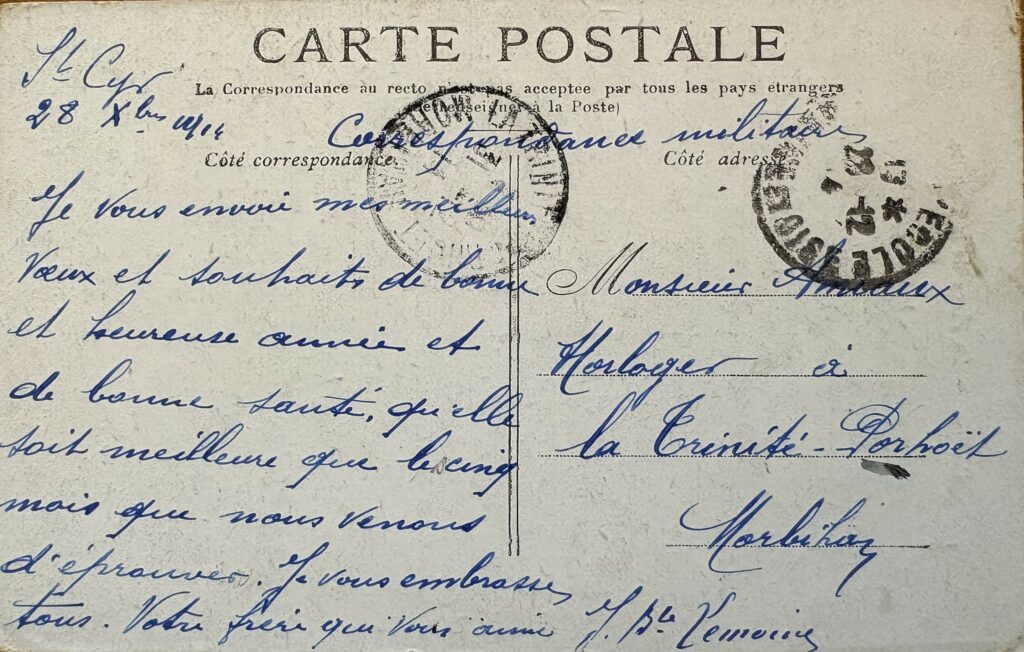 CARTE POSTALE
La Correspondance au recto n'est pas acceptée par tous les pays étrangers
(Se renseigner à la Poste)
St Cyr
28 Xbre 1914
Correspondance militaire
Côté correspondance
Côté adresse
LA TRINITÉ
13 *
28 -12
4
ECOLE
Je vous envoie mes meilleurs
vœux et souhaits de bonne
et heureuse année et
de bonne santé, qu'elle
soit meilleure que les cinq
mois que nous venons
d'éprouver. Je vous embrasse
tous. Votre frère qui vous aime J. Bte Lemoine
Monsieur Amieux
Horloger à
la Trinité-Porhoët
Morbihan